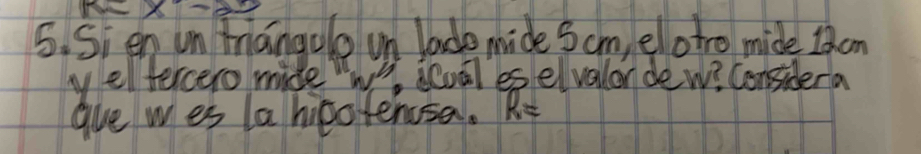 5. Si en un triángulo un lado mide 5 cm, el otro mide 12 cm
y el tercero mide "w", ¿Cuál es el valor de w? Considera
que w es la hipotenusa. R=